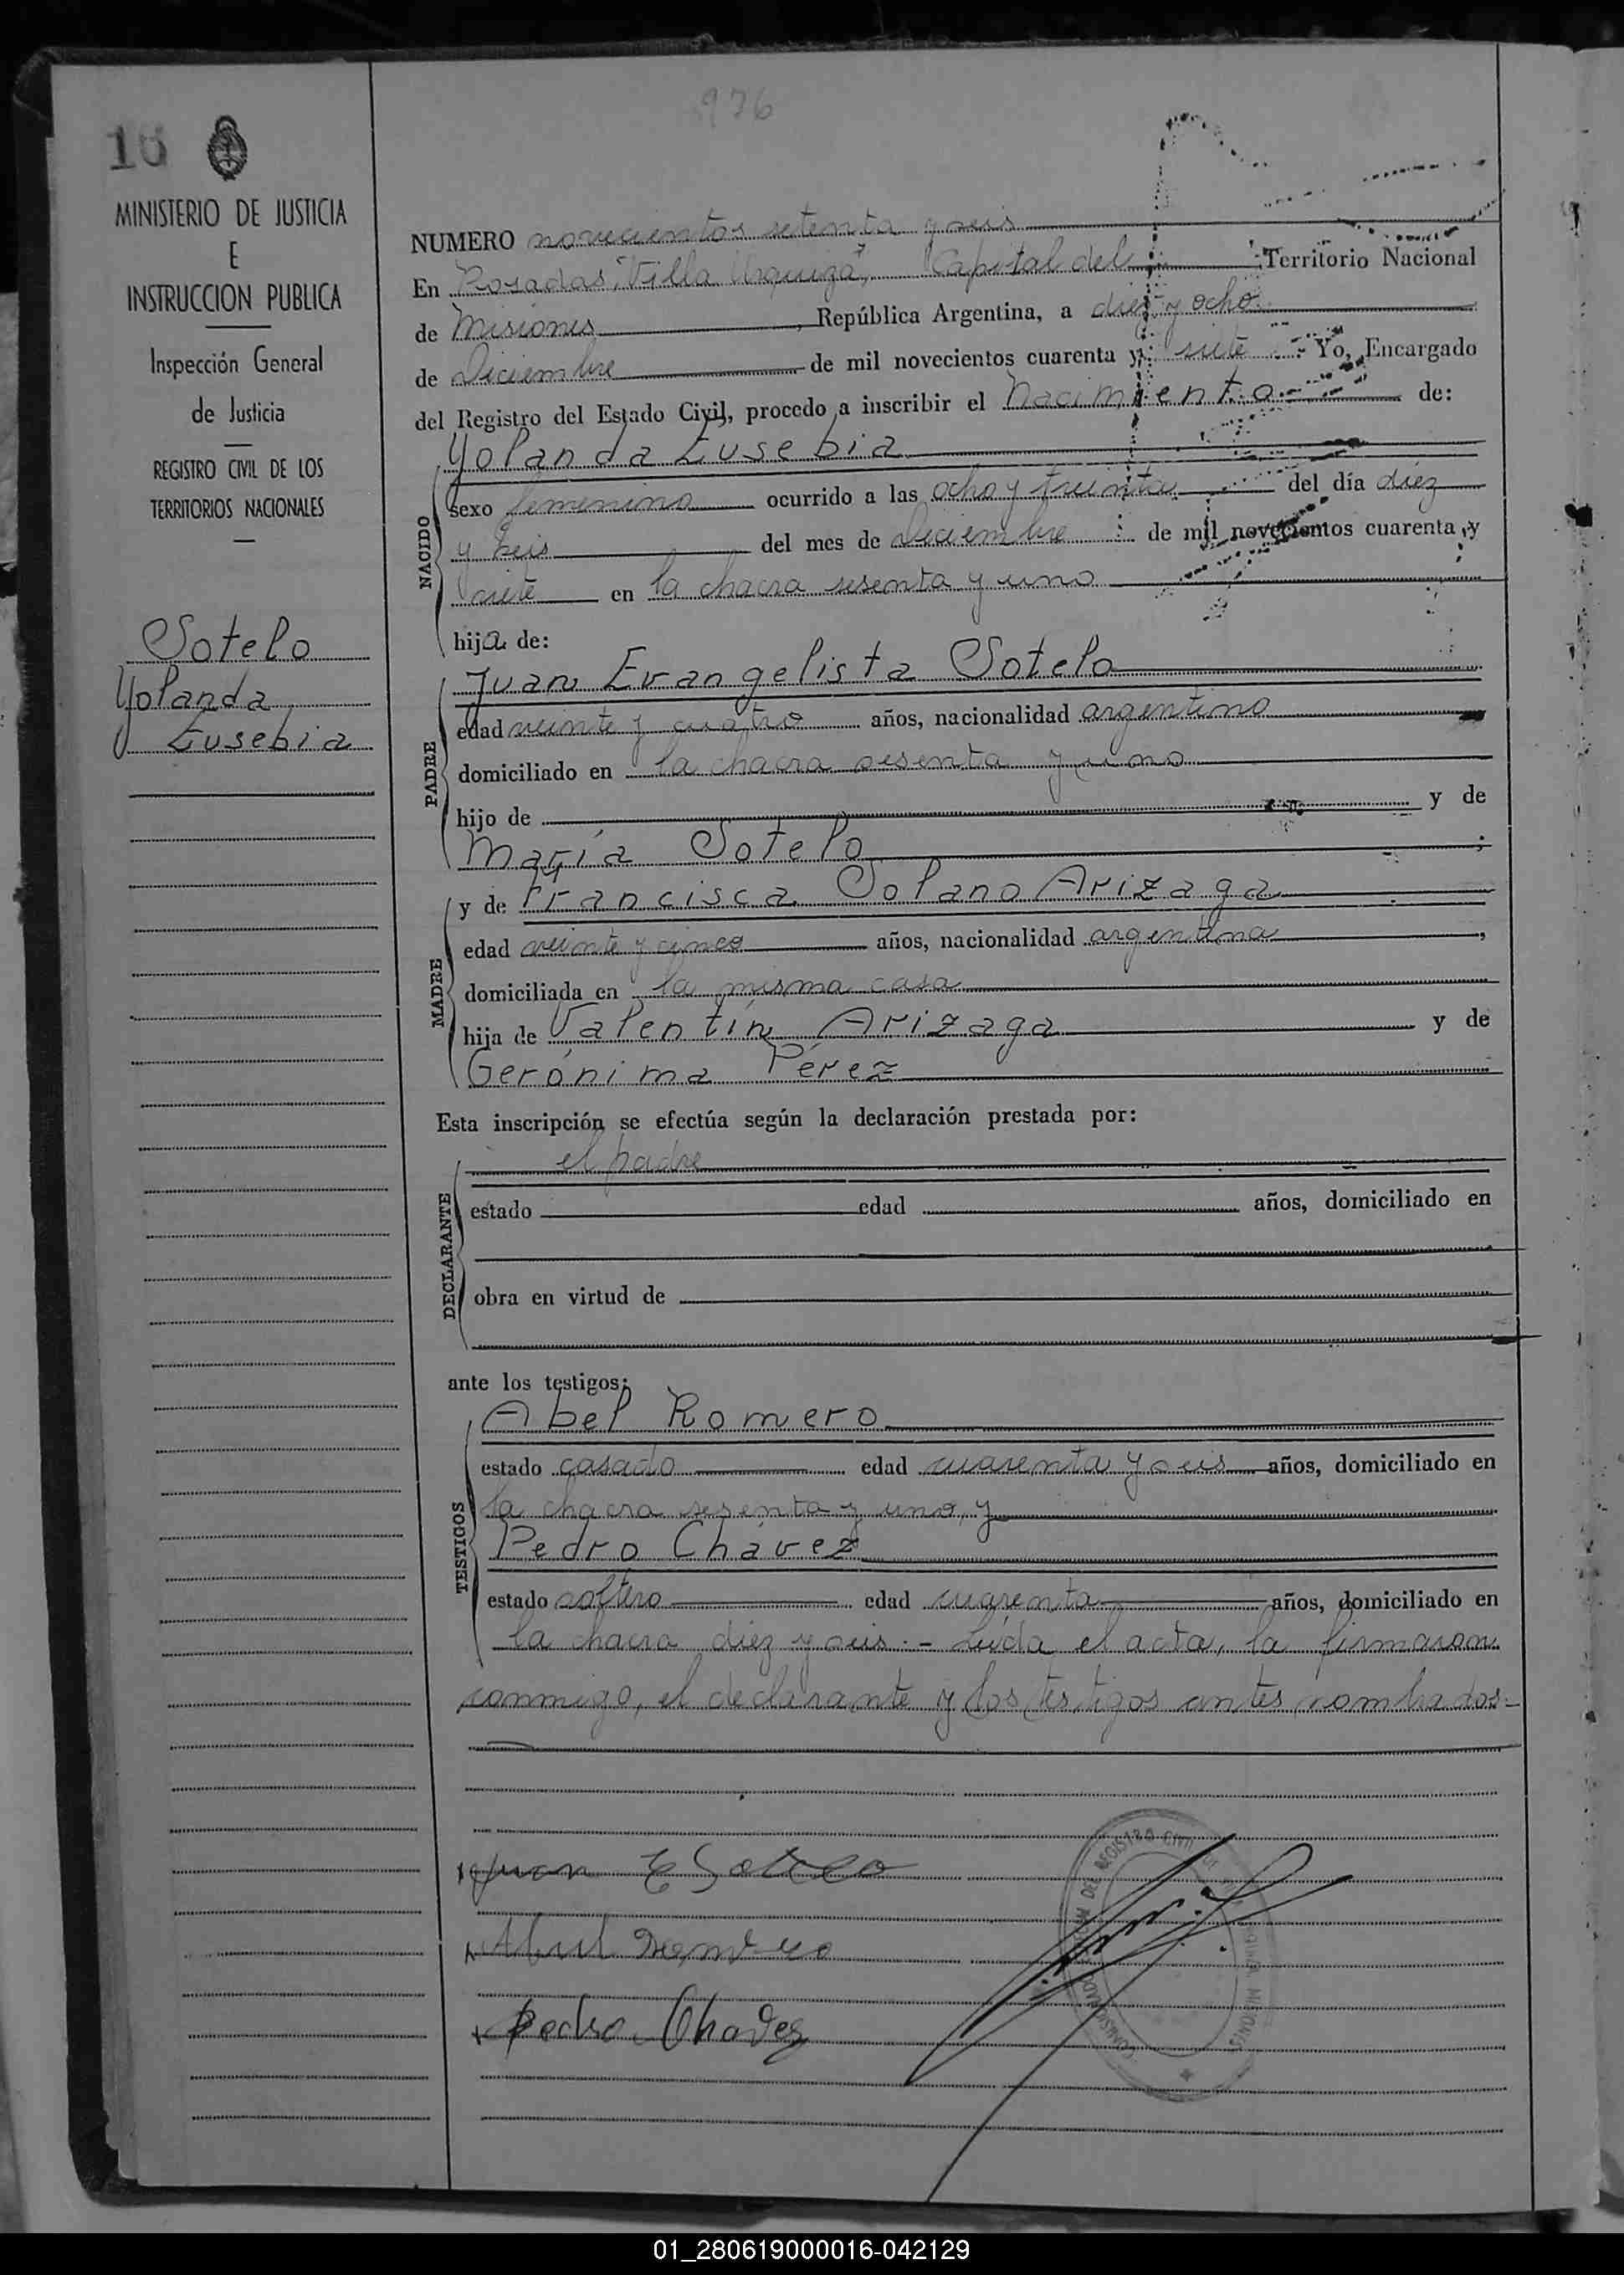 976
16
MINISTERIO DE JUSTICIA
E
INSTRUCCION PUBLICA
Inspección General
de Justicia
REGISTRO CIVIL DE LOS
TERRITORIOS NACIONALES
Sotelo
Yolanda
Eusebia
NUMERO novecientos setenta y seis
En Posadas, "Villa Urquiza", Capital del Territorio Nacional
de Misiones, República Argentina, a diez y ocho
de Diciembre de mil novecientos cuarenta y siete. Yo, Encargado
del Registro del Estado Civil, procedo a inscribir el Nacimiento de:
NACIDO
Yolanda Eusebia
sexo femenino ocurrido a las ocho y treinta del día diez
y seis del mes de Diciembre de mil novecientos cuarenta y
siete en la chacra sesenta y uno
hija de:
PADRE
Juan Evangelista Sotelo
edad veinte y cuatro años, nacionalidad argentino
domiciliado en la chacra sesenta y uno
hijo de y de
María Sotelo;
MADRE
y de Francisca Solano Arizaga
edad veinte y cinco años, nacionalidad argentina,
domiciliada en la misma casa
hija de Valentín Arizaga y de
Gerónima Pérez
Esta inscripción se efectúa según la declaración prestada por:
DECLARANTE
el padre
estado edad años, domiciliado en
obra en virtud de
ante los testigos:
TESTIGOS
Abel Romero
estado casado edad cuarenta y seis años, domiciliado en
la chacra sesenta y uno, y
Pedro Chávez
estado soltero edad cuarenta años, domiciliado en
la chacra diez y seis.- Leída el acta, la firmaron
conmigo, el declarante y los testigos antes nombrados.-
Juan E Sotelo
Abel Romero
Pedro Chavez
DEL REGISTRO CIVIL
MISIONES
01_280619000016-042129